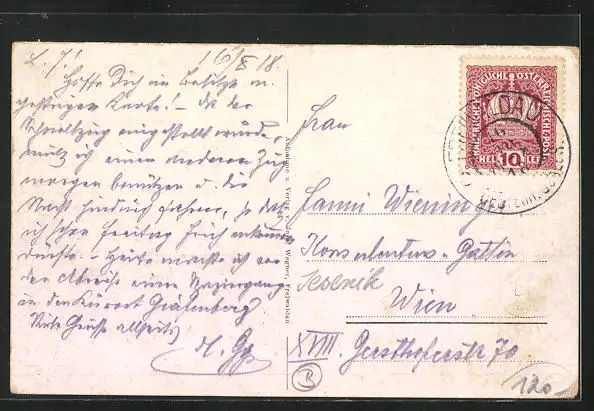 L. J.! 16/X 18.
Hoffe Dich im Besitze m.
gestrigen Karte! – Da der
Schnellzug eingestellt wurde,
muß ich einen anderen Zug
morgen benützen u. die
Nacht hindurch fahren, so daß
ich schon Freitag früh ankommen
dürfte. – Heute machte ich vor
der Abreise einen Spaziergang
in den Kurort Gräfenberg
Viele Grüße allseits
Aufnahme u. Verlag v. Wagner, Freiwaldau
KAISERLICHE KÖNIGLICHE ÖSTERREICHISCHE POST
HELLER 10
Frau
Fanni Wieninger
Gattin
Wien
XVIII. Gersthoferstr. 70
B
120